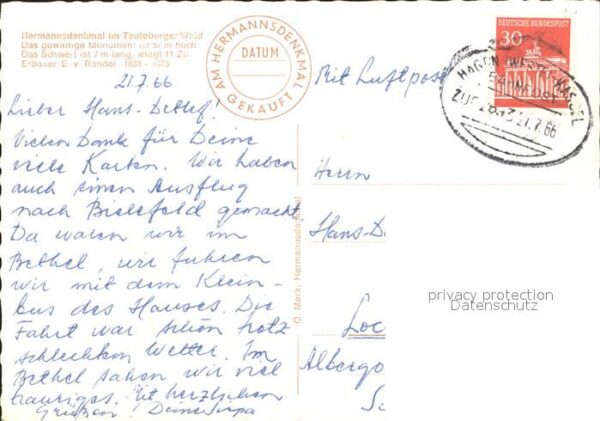 Hermannsdenkmal im Teutoburger Wald
Das gewaltige Monument ist 57 m hoch
Das Schwert ist 7 m lang, wiegt 11 Ztr.
Erbauer E. v. Bandel 1838 - 1875
AM HERMANNSDENKMAL
DATUM
GEKAUFT
DEUTSCHE BUNDESPOST
30
HAGEN (WESTF)-KASSEL
BAHNPOST
ZUG 21.7.66
21.7.66
Lieber Hans-Detlef!
Vielen Dank für Deine
viele Karten. Wir haben
auch einen Ausflug
nach Bielefeld gemacht
Da waren wir im
Bethel, wir fuhren
wir mit dem Klein-
bus des Hauses. Die
Fahrt war schön trotz
schlechten Wetter. Im
Bethel sahen wir viel
trauriges. Mit herzlichen
Grüßen! Deine
O. Mock, Hermannsdenkmal
Mit Luftpost
Herrn
Hans-D
Loc
Albergo
privacy protection
Datenschutz